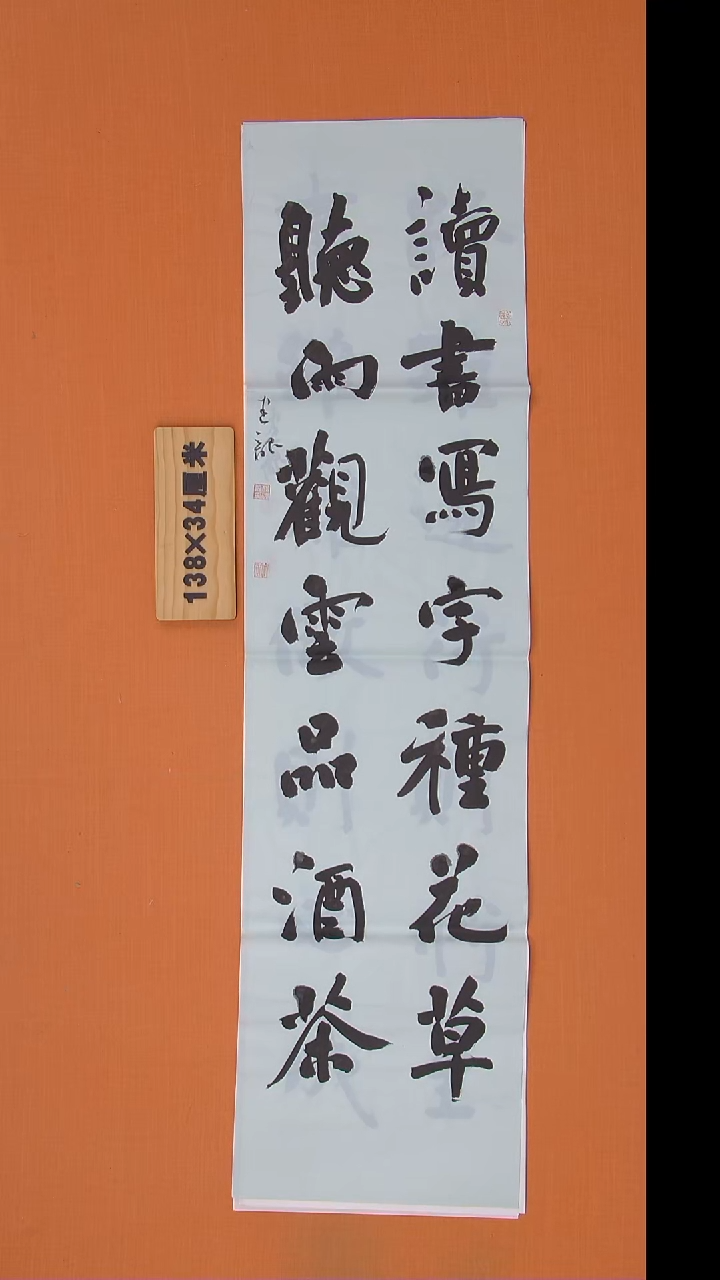 讀書寫字種花草
聽雨觀雲品酒茶
138×34厘米